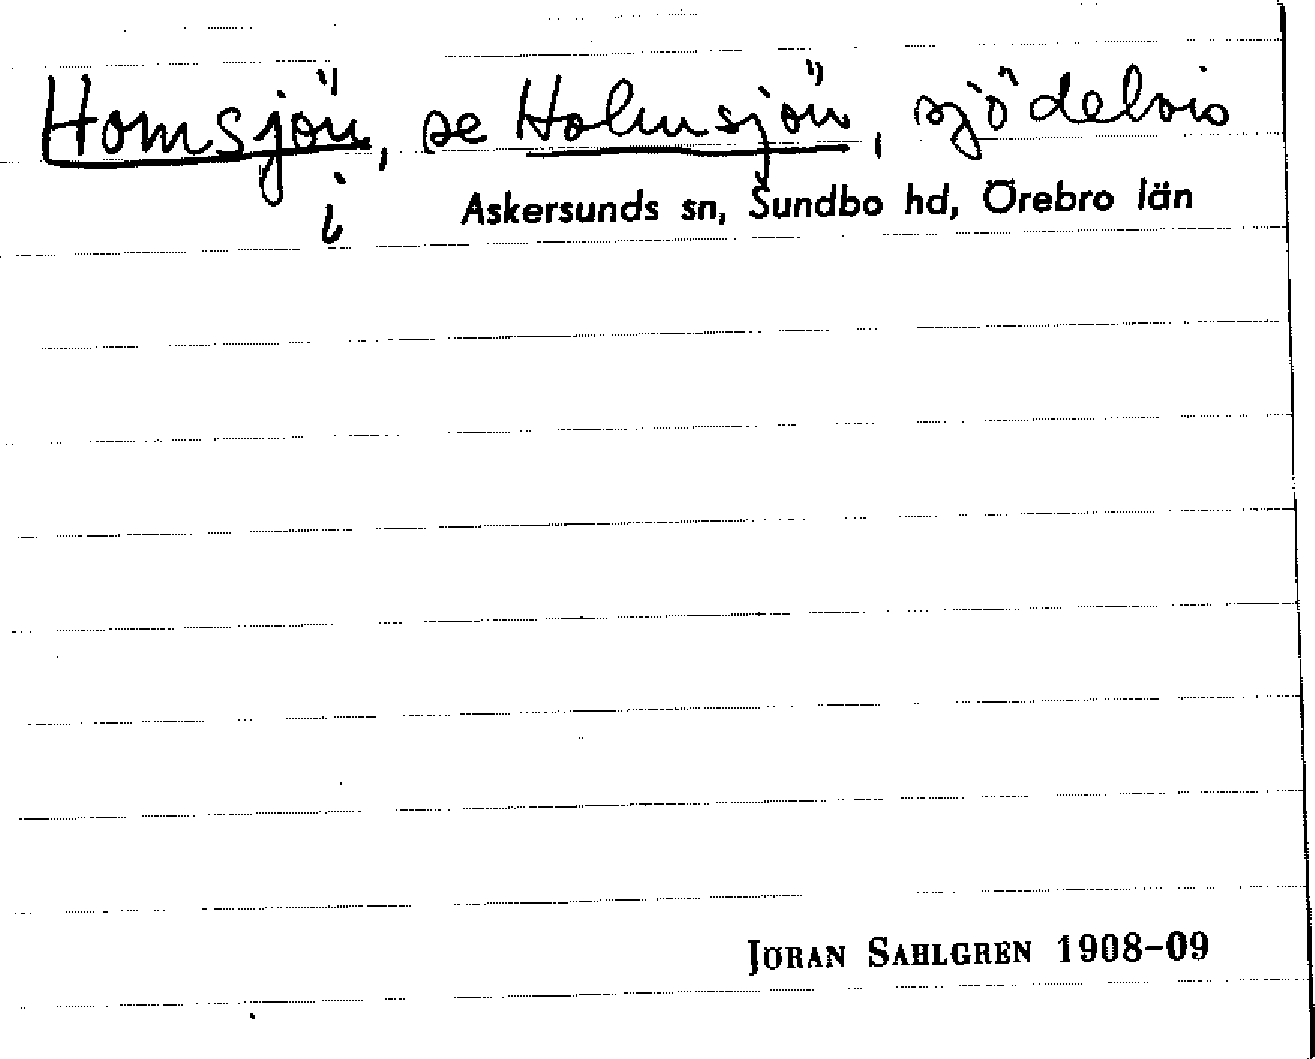 Homsjön, se Holmsjön, sjödelvis
i Askersunds sn, Sundbo hd, Örebro län
JÖRAN SAHLGREN 1908-09